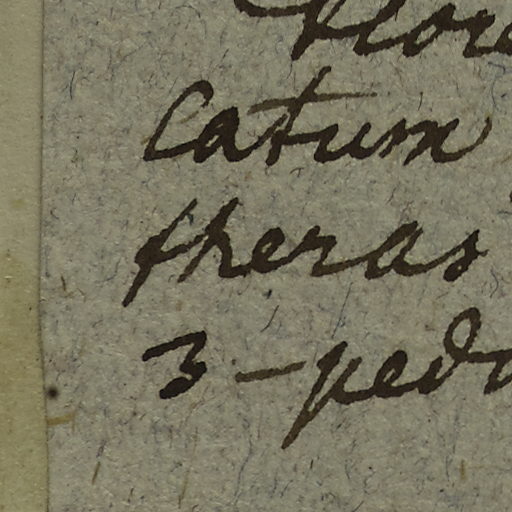 Flore
catum
theras
3-peda